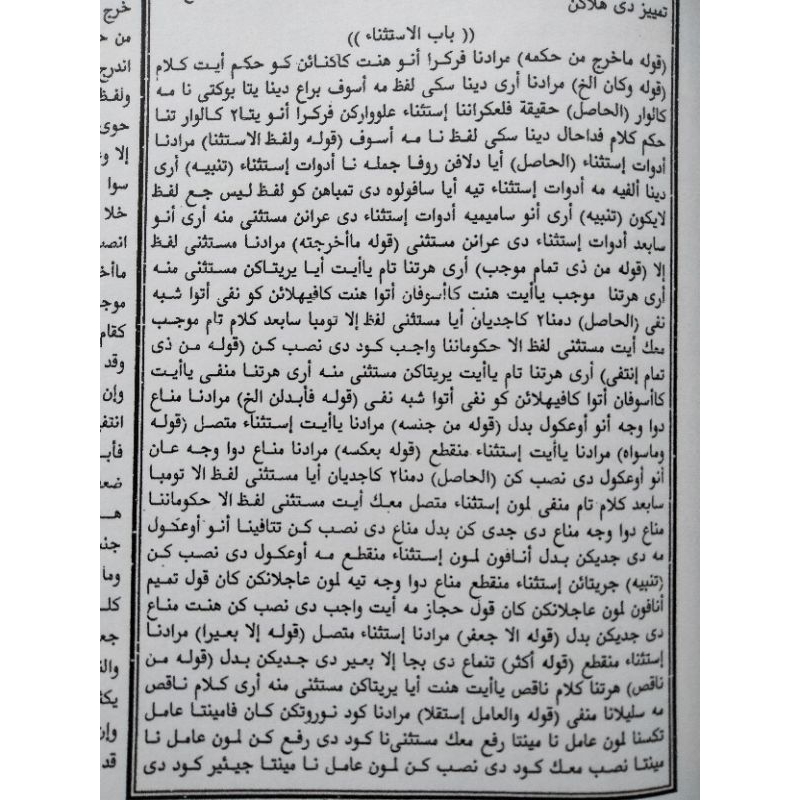 تمييز دي هلاكن
(( باب الاستثناء ))
(قوله ماخرج من حكمه) مرادنا فركرا أنو هنت كاكنائن كو حكم أيت كلام
(قوله وكان الخ) مرادنا أرى دينا سكى لفظ مه أسوف براع دينا يتا بوكتى نا مه
كالوار (الحاصل) حقيقة فلعكراننا إستثناء علوواركن فركرا أنو يتا٢ كالوار تنا
حكم كلام فداحال دينا سكى لفظ نا مه أسوف (قوله ولفظ الاستثنا) مرادنا
أدوات إستثناء (الحاصل) أيا دلافن روفا جمله نا أدوات إستثناء (تنبيه) أرى
دينا ألفيه مه أدوات إستثناء تيه أيا سافولوه دى تمباهن كو لفظ ليس جع لفظ
لايكون (تنبيه) أرى أنو ساميميه أدوات إستثناء دى عرانن مستثنى منه أرى أنو
سابعد أدوات إستثناء دى عرانن مستثنى (قوله ماأخرجته) مرادنا مستثنى لفظ
إلا (قوله من ذى تمام موجب) أرى هرتنا تام ياأيت أيا يريتاكن مستثنى منه
أرى هرتنا موجب ياأيت هنت كاأسوفان أتوا هنت كافيهلائن كو نفى أتوا شبه
نفى (الحاصل) دمنا٢ كاجديان أيا مستثنى لفظ إلا تومبا سابعد كلام تام موجب
معك أيت مستثنى لفظ الا حكوماننا واجب كود دى نصب كن (قوله من ذى
تمام إنتفى) أرى هرتنا تام ياأيت يريتاكن مستثنى منه أرى هرتنا منفى ياأيت
كاأسوفان أتوا كافيهلائن كو نفى أتوا شبه نفى (قوله فأبدلن الخ) مرادنا مناع
دوا وجه أنو أوعكول بدل (قوله من جنسه) مرادنا ياأيت إستثناء متصل (قوله
وماسواه) مرادنا ياأيت إستثناء منقطع (قوله بعكسه) مرادنا مناع دوا وجه عان
أنو أوعكول دى نصب كن (الحاصل) دمنا٢ كاجديان أيا مستثنى لفظ الا تومبا
سابعد كلام تام منفى لمون إستثناء متصل معك أيت مستثنى لفظ الا حكوماننا
مناع دوا وجه مناع دى جدى كن بدل مناع دى نصب كن تتافينا أنو أوعكول
مه دى جديكن بدل أنافون لمون إستثناء منقطع مه أوعكول دى نصب كن
(تنبيه) جريتائن إستثناء منقطع مناع دوا وجه تيه لمون عاجلانكن كان قول تميم
أنافون لمون عاجلانكن كان قول حجاز مه أيت واجب دى نصب كن هنت مناع
دى جديكن بدل (قوله الا جعفر) مرادنا إستثناء متصل (قوله إلا بعيرا) مرادنا
إستثناء منقطع (قوله أكثر) تنماع دى بجا إلا بعير دى جديكن بدل (قوله من
ناقص) هرتنا كلام ناقص ياأيت هنت أيا يريتاكن مستثنى منه أرى كلام ناقص
مه سليلانا منفى (قوله والعامل إستقلا) مرادنا كود نوروتكن كان فامينتا عامل
تكسنا لمون عامل نا مينتا رفع معك مستثنى نا كود دى رفع كن لمون عامل نا
مينتا نصب معك كود دى نصب كن لمون عامل نا مينتا جيئير كود دى